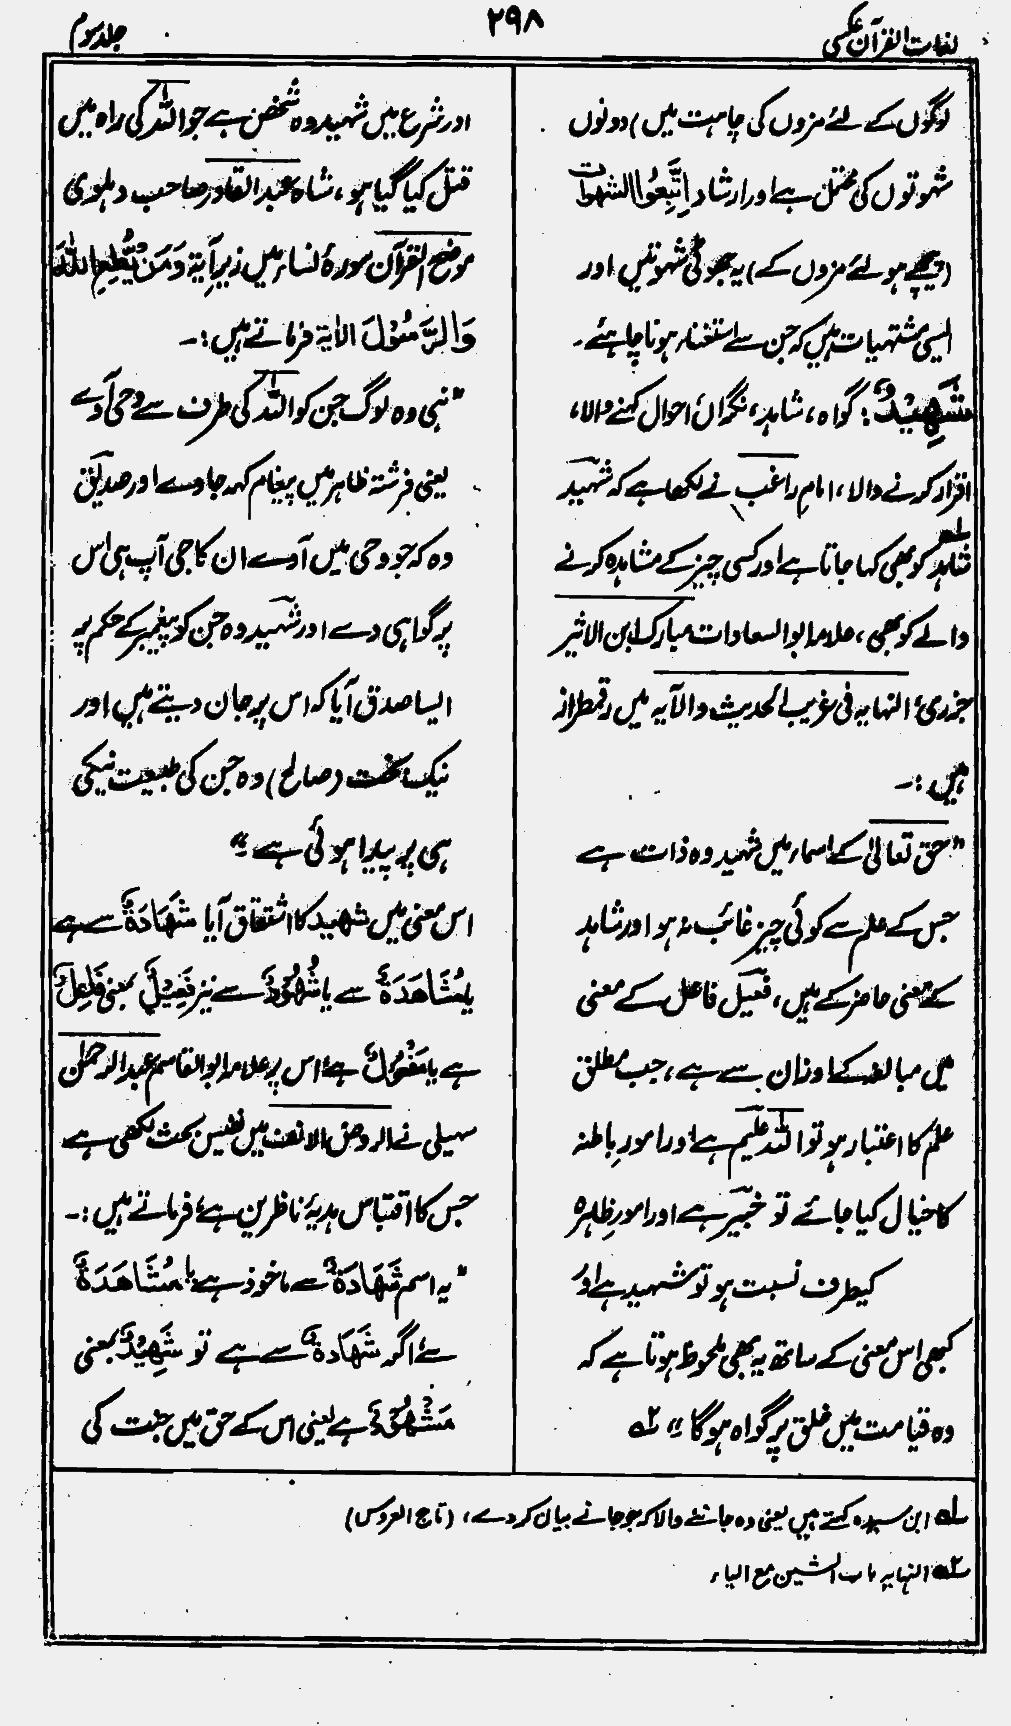 لغات القرآن عکسی
۲۹۸
جلد سوم
لوگوں کے لئے مزوں کی چاہت میں) دونوں
شہوتوں کی محتمل ہے اور ارشاد اِتَّبِعُوا الشہوات
(پیچھے ہو لئے مزوں کے) یہ جھوٹی شہوتیں اور
ایسی مشتہیات ہیں کہ جن سے استغناء ہونا چاہئے۔
شَہِیْدٌ: گواہ، شاہد، نگران احوال کہنے والا،
اقرار کرنے والا، امام راغب نے لکھا ہے کہ شہید
شاہد کو بھی کہا جاتا ہے اور کسی چیز کے مشاہدہ کرنے
والے کو بھی، علامہ ابو السعادات مبارک ابن الاثیر
جزری، النہایہ فی غریب الحدیث والآیہ میں رقمطراز
ہیں:۔
"حق تعالیٰ کے اسماء میں شہید وہ ذات ہے
جس کے علم سے کوئی چیز غائب نہ ہو اور شاہد
کے معنی حاضر کے ہیں، فعیل فاعل کے معنی
میں مبالغہ کے اوزان سے ہے، جب مطلق
علم کا اعتبار ہو تو اللہ علیم ہے اور امور باطنہ
کا خیال کیا جائے تو خبیر ہے اور امور ظاہرہ
کیطرف نسبت ہو تو شہید ہے اور
کبھی اس معنی کے ساتھ یہ بھی ملحوظ ہوتا ہے کہ
وہ قیامت میں خلق پر گواہ ہوگا" ۲ہ
اور شرع میں شہید وہ شخص ہے جو اللہ کی راہ میں
قتل کیا گیا ہو، شاہ عبد القادر صاحب دہلوی
موضح القرآن سورۂ نساء میں زیر آیۃ وَمَنْ یُّطِعِ اللہَ
وَالرَّسُوْلَ الایۃ فرماتے ہیں:۔
"نبی وہ لوگ جن کو اللہ کی طرف سے وحی آوے
یعنی فرشتہ ظاہر میں پیغام کہہ جاوے اور صدیق
وہ کہ جو وحی میں آوے ان کا جی آپ ہی اس
پر گواہی دے اور شہید وہ جن کو پیغمبر کے حکم پر
ایسا صدق آیا کہ اس پر جان دیتے ہیں اور
نیک بخت (صالح) وہ جن کی طبیعت نیکی
ہی پر پیدا ہوئی ہے"
اس معنی میں شہید کا اشتقاق آیا شَہَادَۃٌ سے ہے
یا مُشَاہَدَۃٌ سے یا شُہُوْدٌ سے نیز فَعِیْلٌ بمعنی فَاعِلٌ
ہے یا مَفْعُوْلٌ ہے اس پر علامہ ابو القاسم عبد الرحمٰن
سہیلی نے الروض الانف میں نفیس بحث لکھی ہے
جس کا اقتباس ہدیۂ ناظرین ہے، فرماتے ہیں:۔
"یہ اسم شَہَادَۃٌ سے ماخوذ ہے یا مُشَاہَدَۃٌ
سے، اگر شَہَادَۃٌ سے ہے تو شَہِیْدٌ بمعنی
مَشْہُوْدٌ ہے یعنی اس کے حق میں جنت کی
۱ہ ابن سیدہ کہتے ہیں یعنی وہ جاننے والا کہ جو جانے بیان کر دے، (تاج العروس)
۲ہ النہایہ باب الشین مع الہاء